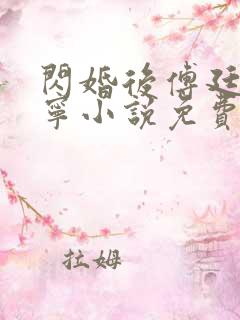 閃婚後傅廷
寧小說免費
拉姆